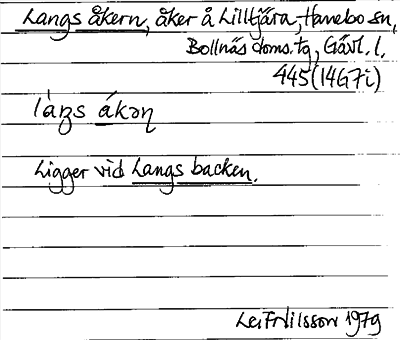 Langs åkern, åker å Lilltjära, Hanebo sn,
Bollnäs doms. tg, Gävl. l.
445 (14G7i)
làŋs ákəɳ
Ligger vid Langs backen.
Leif Nilsson 1979